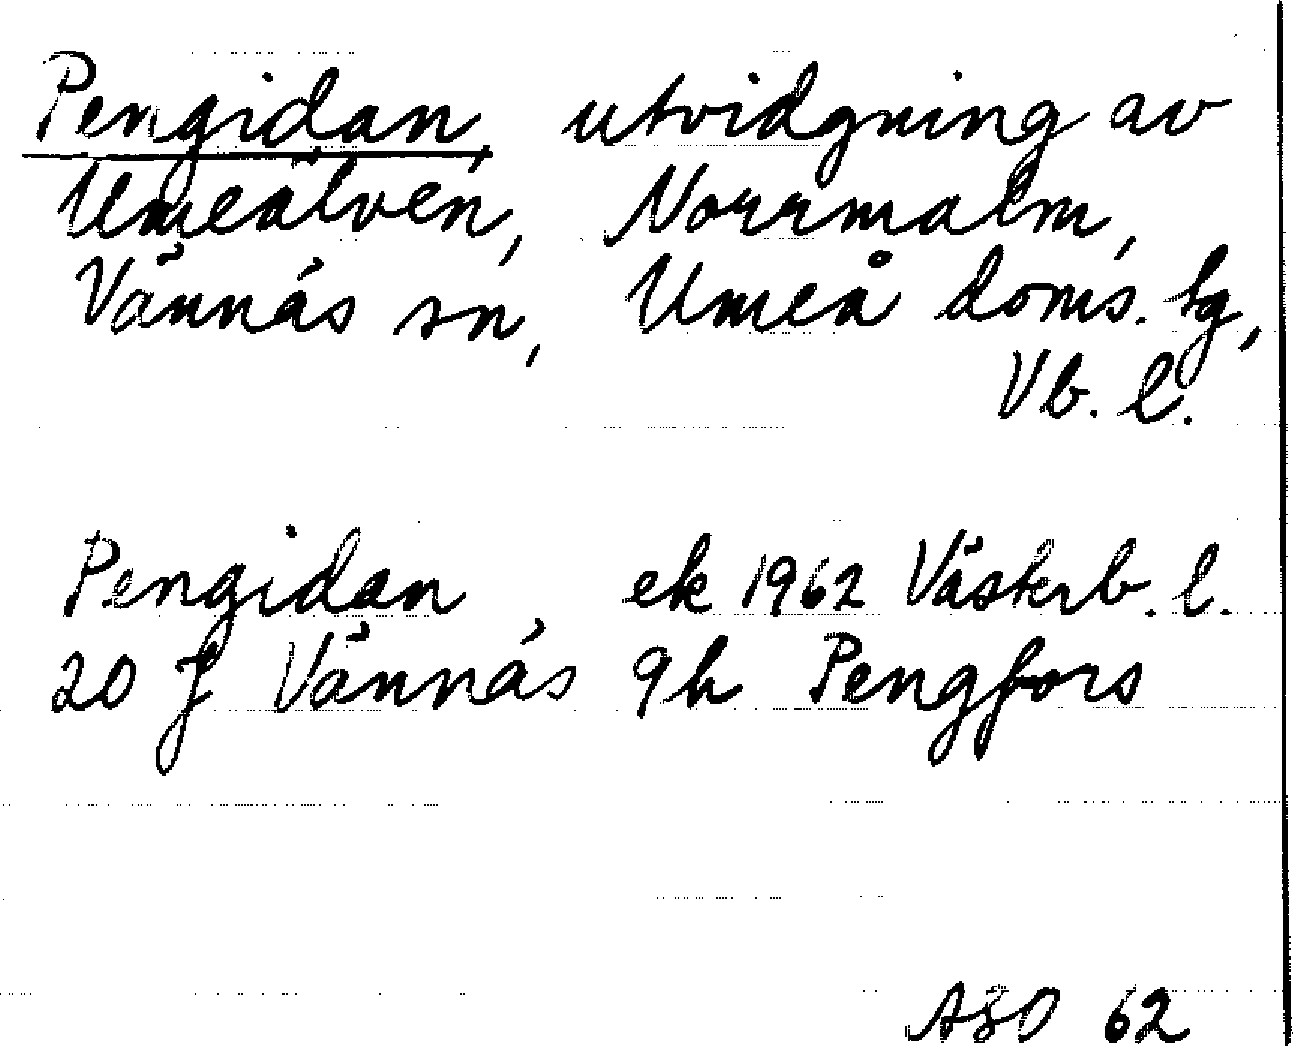 Pengidan, utvidgning av
Umeälven, Norrmalm,
Vännäs sn, Umeå doms. tg,
Vb. l.
Pengidan ek 1962 Västerb. l.
20 J Vännäs 9h Pengfors
62